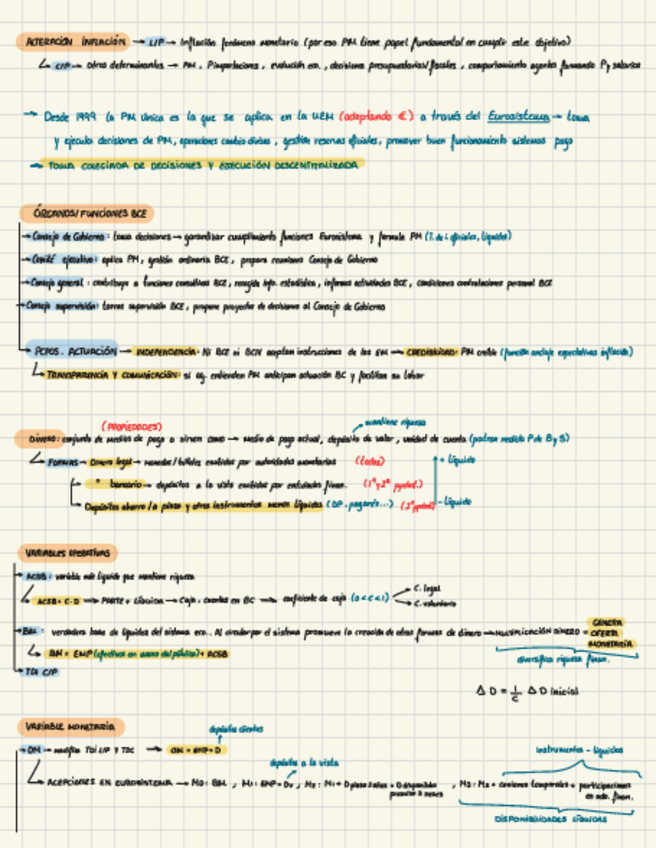 ALTERACIÓN INFLACIÓN → L/P → Inflación fenómeno monetario (por eso PM tiene papel fundamental en cumplir este objetivo)
↳ C/P → Otros determinantes → PM, Pimportaciones, evolución eco., decisiones presupuestarias/fiscales, comportamiento agentes formando P y salarios
→ Desde 1999 la PM única es la que se aplica en la UEM (adoptando €) a través del Eurosistema → toma
y ejecuta decisiones de PM, operaciones cambio divisas, gestión reservas oficiales, promover buen funcionamiento sistemas pago
→ TOMA COLEGIADA DE DECISIONES Y EJECUCIÓN DESCENTRALIZADA
ÓRGANOS/FUNCIONES BCE
→ Consejo de Gobierno: toma decisiones → garantizar cumplimiento funciones Eurosistema y formula PM (T. de i oficiales, liquidez)
→ Comité ejecutivo: aplica PM, gestión ordinaria BCE, prepara reuniones Consejo de Gobierno
→ Consejo general: contribuye a funciones consultivas BCE, recogida info. estadística, informes actividades BCE, condiciones contrataciones personal BCE
→ Consejo supervisión: tareas supervisión BCE, propone proyectos de decisiones al Consejo de Gobierno
→ PCPOS. ACTUACIÓN → INDEPENDENCIA: Ni BCE ni BCN aceptan instrucciones de los EM → CREDIBILIDAD: PM creíble (función anclaje expectativas inflación)
↳ TRANSPARENCIA Y COMUNICACIÓN: si ag. entienden PM anticipan actuación BC y facilitan su labor
(PROPIEDADES)
mantiene riqueza
DINERO: conjunto de medios de pago o sirven como → medio de pago actual, depósito de valor, unidad de cuenta (patrón medida P de B y S)
↳ FORMAS → Dinero legal → monedas/billetes emitidos por autoridades monetarias (todas)
+ líquido
" bancario → depósitos a la vista emitidos por entidades finan. (1ª y 2ª ppdad.)
→ Depósitos ahorro/a plazo y otros instrumentos menos líquidos (DP, pagarés...) (3ª ppdad)
- líquido
VARIABLES OPERATIVAS
→ ACSB: variable más líquida que mantiene riqueza
↳ ACSB = C·D → PARTE + LÍQUIDA → Caja, cuentas en BC → coeficiente de caja (0<c<1)
C. legal
C. voluntario
→ BM: verdadera base de liquidez del sistema eco.. Al circular por el sistema promueve la creación de otras formas de dinero → MULTIPLICACIÓN DINERO =
GENERA
OFERTA
MONETARIA
↳ BM = EMP (efectivo en manos del público) + ACSB
diversifica riqueza finan.
→ TDI C/P
Δ D = 1/c Δ D inicial
VARIABLE MONETARIA
depósitos clientes
→ OM → modifica TDI L/P Y TDC → OM = EMP + D
depósitos a la vista
Instrumentos - líquidos
↳ ACEPCIONES EN EUROSISTEMA → M0: BM, M1: EMP + Dv, M2: M1 + D plazo 2 años + D disponibles preaviso 3 meses, M3: M2 + cesiones temporales + participaciones
DISPONIBILIDADES LÍQUIDAS